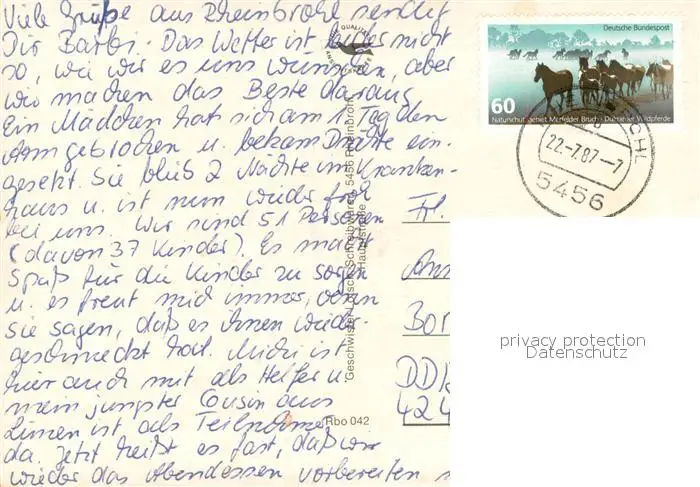 Viele Grüße aus Rheinbrohl sendet
Dir Bärbi. Das Wetter ist leider nicht
so, wie wir es uns wünschen, aber
wir machen das Beste daraus
Ein Mädchen hat sich am 1. Tag den
Arm gebrochen u. bekam Drähte ein-
gesetzt. Sie blieb 2 Nächte im Kranken-
haus u. ist nun wieder froh
bei uns. Wir sind 51 Personen
(davon 37 Kinder). Es macht
Spaß für die Kinder zu sorgen
u. es freut mich immer, wenn
sie sagen, daß es ihnen wieder
geschmeckt hat. Mit ist
hier auch mit als Helfer u.
mein jüngster Cousin aus
ist als Teilnehmer
da. Jetzt heißt es fast, daß wir
wieder das Abendessen vorbereiten
QUALITÄT
Geschwister Loosen, Schreibwaren, 5456 Rheinbrohl
Hauptstraße
Rbo 042
Deutsche Bundespost
60
Naturschutzgebiet Merfelder Bruch · Dülmener Wildpferde
22.-7.87.-7
5456
Frl.
Bor
DD
424
privacy protection
Datenschutz